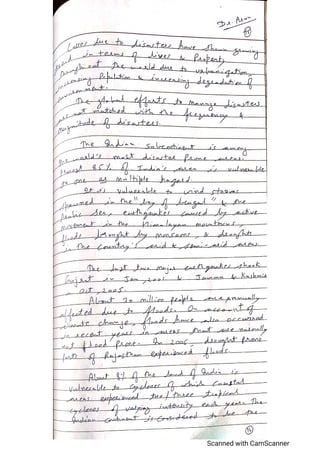 Dr. Arun
Losses due to disasters have shown growing
in terms of lives & Property
throughout the world due to urbanization,
increasing Population & increasing degradation of
environment.
The global efforts to manage disasters
are not matched with the frequency &
magnitude of disasters.
The Indian Subcontinent is among
the world's most disaster prone areas.
Almost 85% of India's area is vulnerable
to one or multiple hazard
It is vulnerable to wind storms
spawned in the "bay of bengal" & the
Arabic Sea, earthquakes caused by active
movement in the Himalayan mountains,
floods brought by monsoons, & droughts
in the country's arid & semi-arid areas.
The last two major earthquakes shook
Gujrat in Jan, 2001 & Jammu & Kashmir
in Oct, 2005
About 30 million people are annually
affected due to floods. On account of
climate change, floods have also occurred
in recent years in areas that are normally
not flood prone. In 2006, drought prone
parts of Rajasthan experienced floods.
About 8% of the land of India is
vulnerable to cyclones of which coastal
areas experienced two/three tropical
cyclones of varying intensity each year. The
Indian continent is considered to be the
Scanned with CamScanner